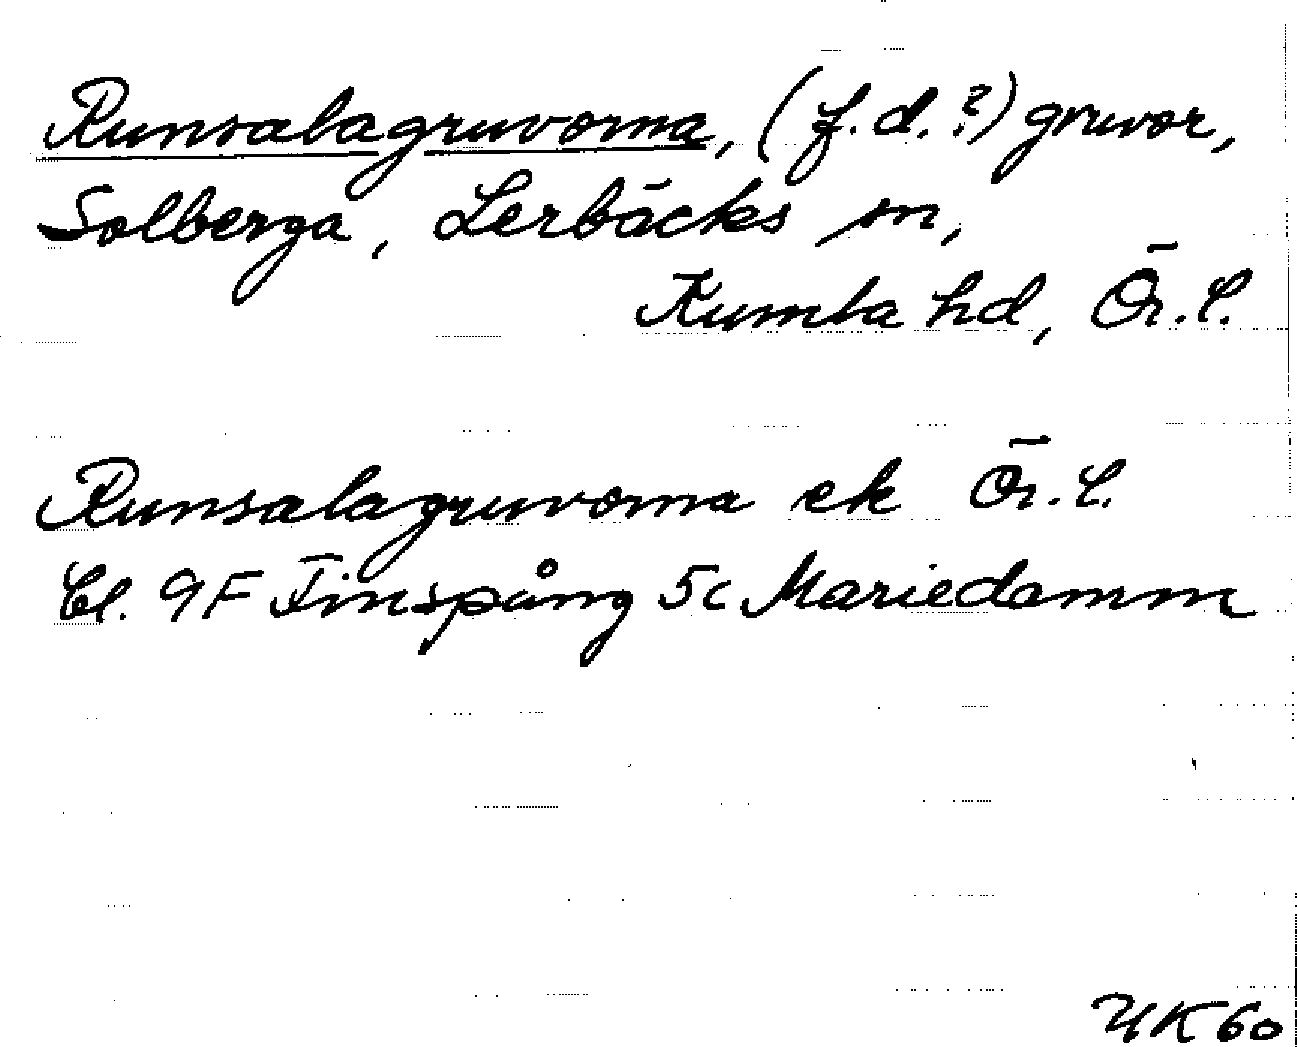 Runsalagruvorna, (f.d.?) gruvor,
Solberga, Lerbäcks sn,
Kumla hd, Ör.l.
Runsalagruvorna ek Ör.l.
Bl. 9F Finspång 5c Mariedamm
YK 60